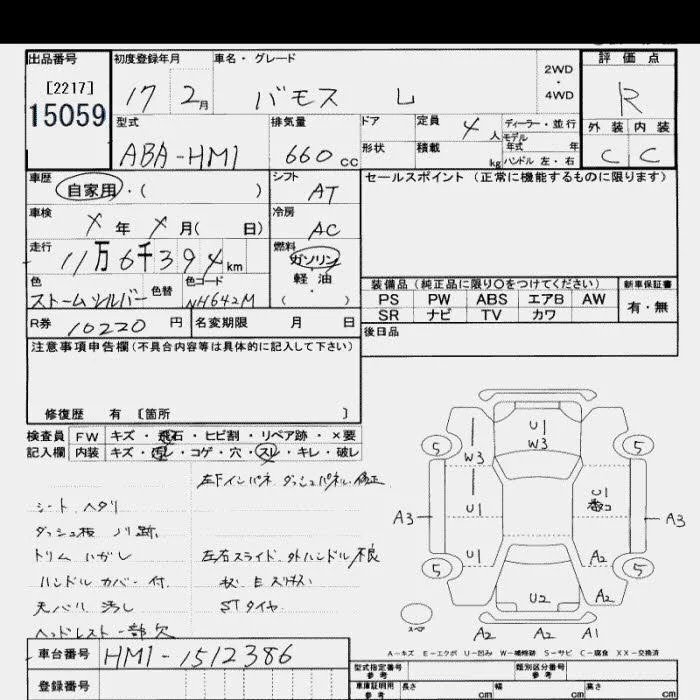 出品番号 初度登録年月 車名・グレード 2WD・4WD 評価点
[2217]
15059 17 2月 バモス L R
型式 排気量 ドア 定員 4人 ディーラー・並行 外装 内装
モデル年式 年
ABA-HM1 660cc 形状 積載 kg ハンドル 左・右 C C
車歴 シフト セールスポイント(正常に機能するものに限ります)
自家用・( ) AT
車検 冷房
メ年 メ月( 日) AC
走行 燃料
11万6千394km ガソリン
軽油
・( )
色 色替 色コード 装備品(純正品に限り〇をつけてください) 新車保証書
ストームシルバー NH642M PS PW ABS エアB AW 有・無
SR ナビ TV カワ
R券 10220円 名変期限 月 日 後日品
注意事項申告欄(不具合内容等は具体的に記入して下さい)
修復歴 有 [箇所 ]
検査員 FW キズ・飛石・ヒビ割・リペア跡・×要
記入欄 内装 キズ・汚レ・コゲ・穴・スレ・キレ・破レ
左Fインパネ ダッシュパネル修正
シート ヘタリ
ダッシュ板 ノリ跡
トリム ハガレ 左右スライド 外ハンドル不良
ハンドルカバー付
天バリ 汚レ STタイヤ
ヘッドレスト一部欠
U1
W3
W3
5 5
U1 U1
A3 A3
U1 A2
5 5
U2 A2
スペア A2 A2 A1
A-キズ E-エクボ U-凹み W-補修跡 S-サビ C-腐食 XX-交換済
車台番号 HM1-1512386
登録番号
型式指定番号 参考 類別区分番号 参考
車庫証明用 参考 長さ cm 幅 cm 高さ cm